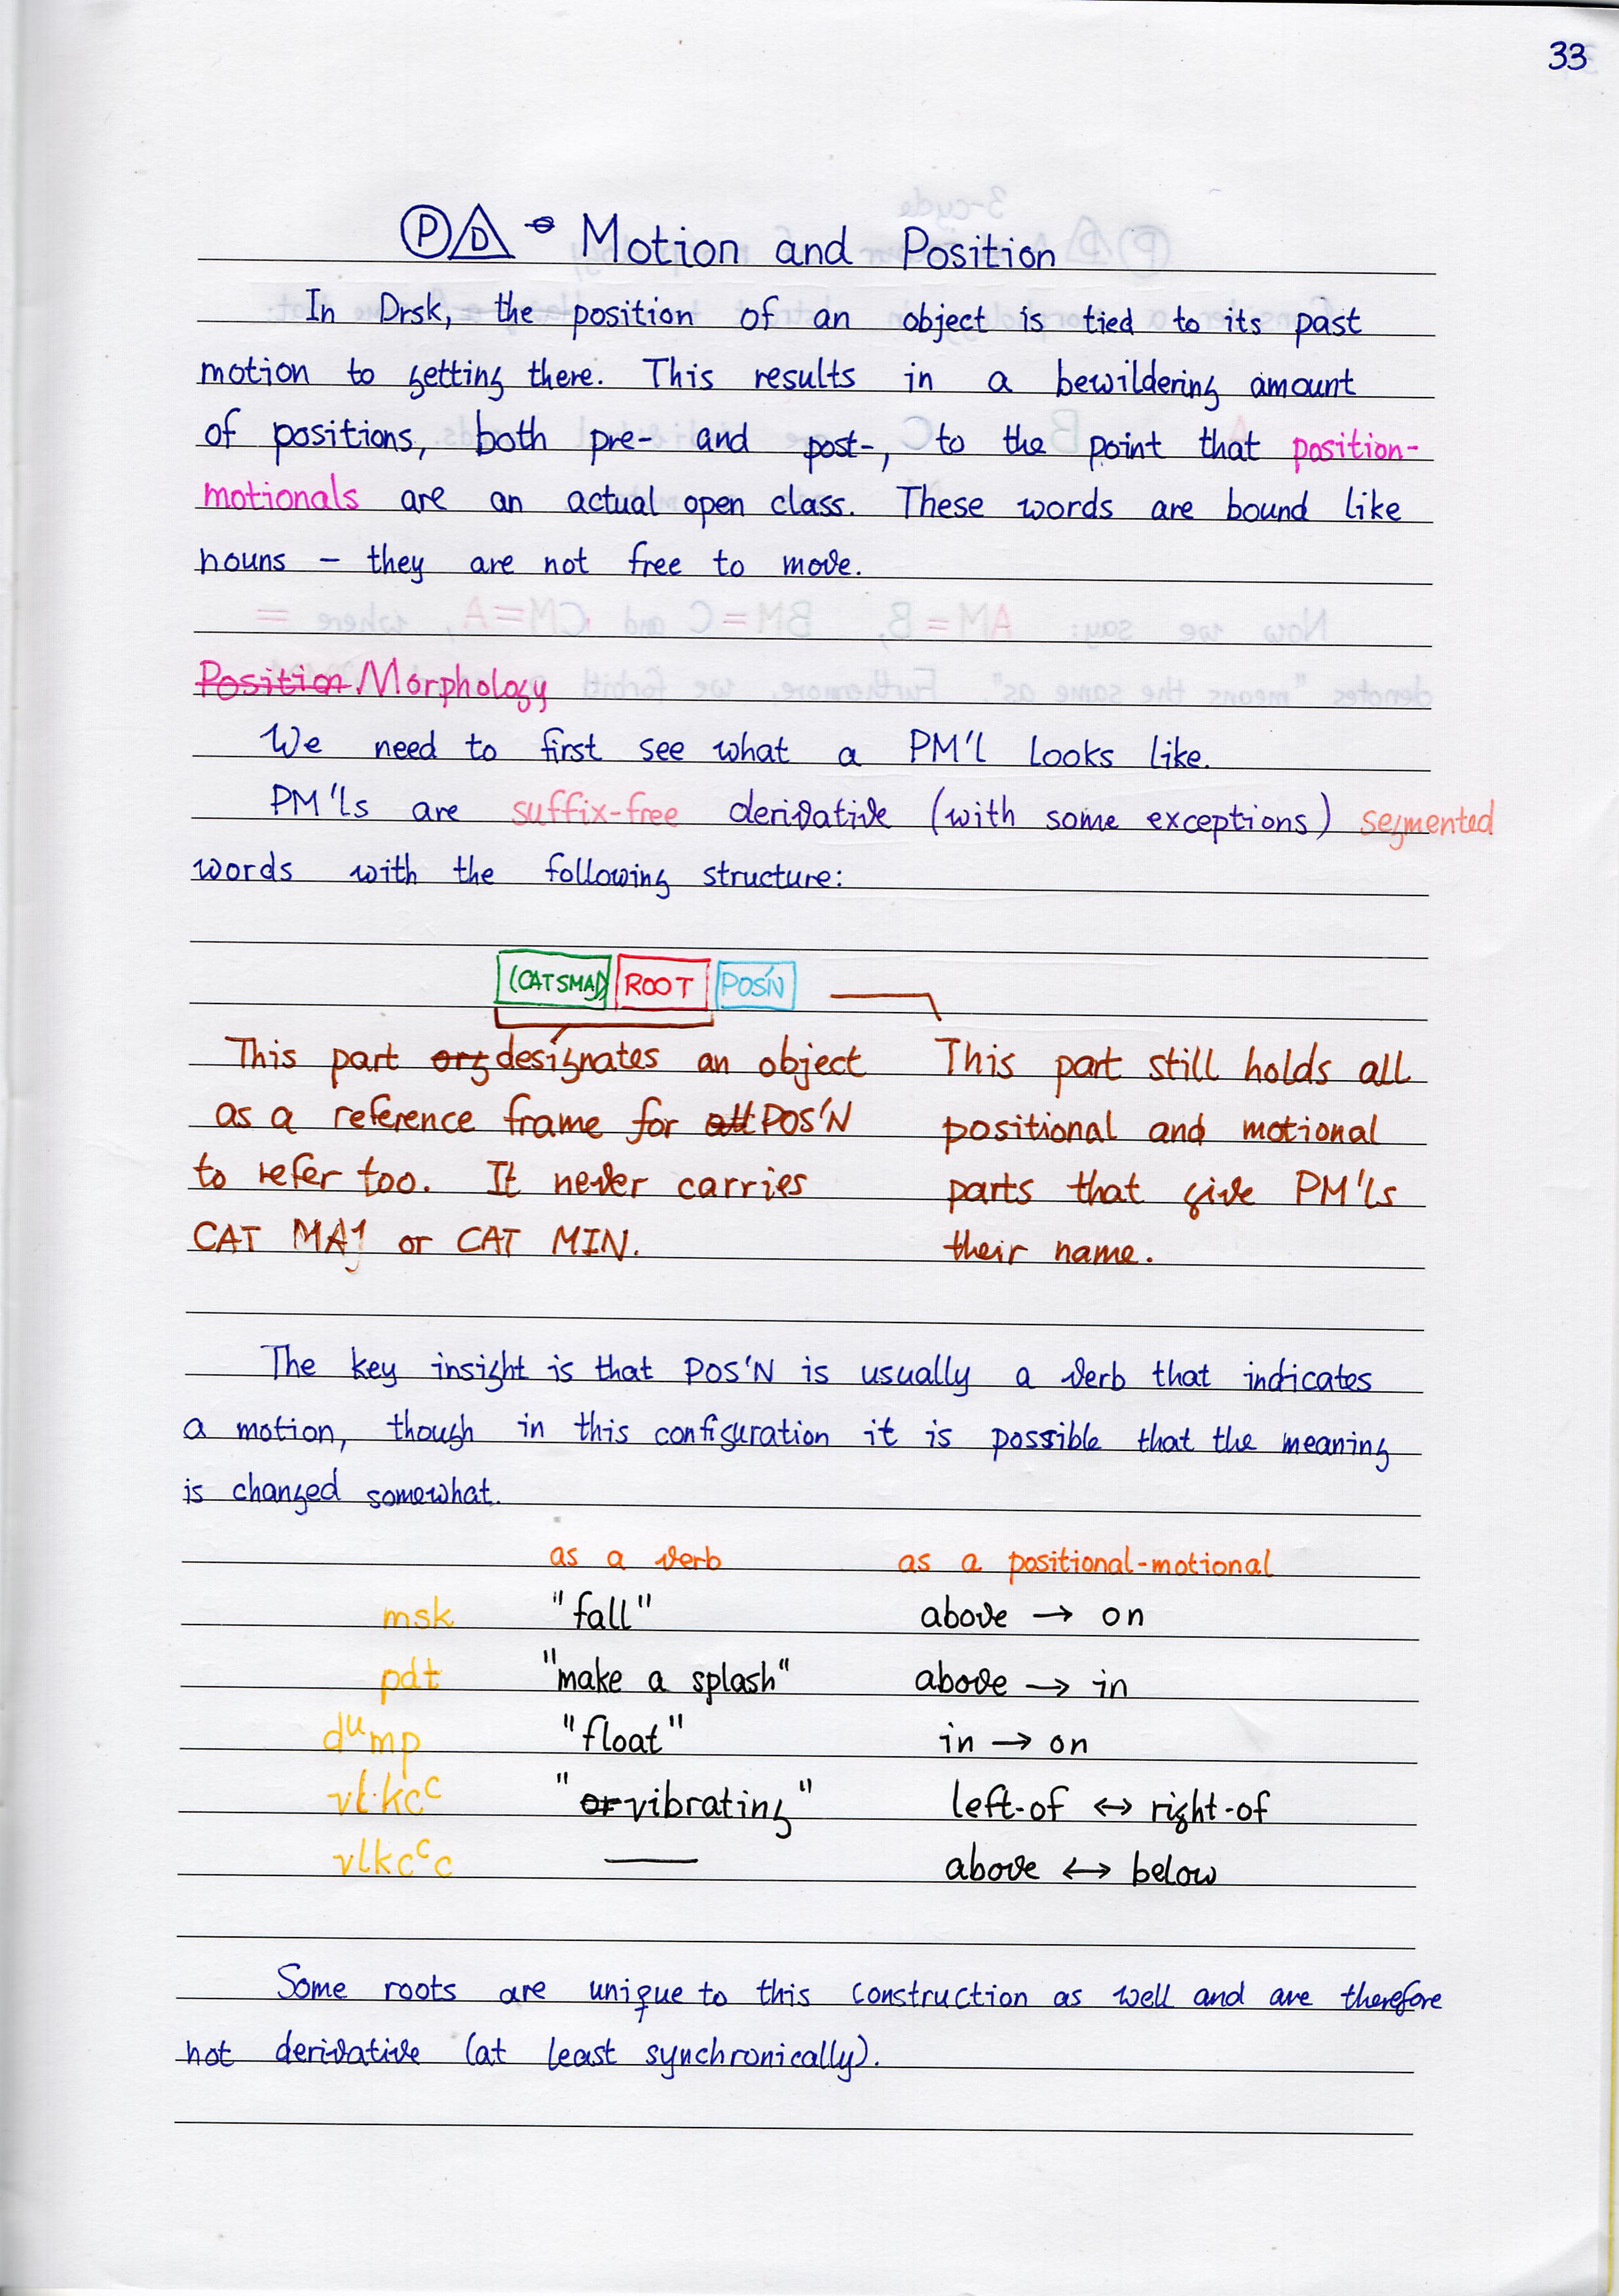 33
P D Motion and Position
In Drsk, the position of an object is tied to its past
motion to getting there. This results in a bewildering amount
of positions, both pre- and post-, to the point that position-
motionals are an actual open class. These words are bound like
nouns – they are not free to move.
Position Morphology
We need to first see what a PM'l looks like.
PM'ls are suffix-free derivative (with some exceptions) segmented
words with the following structure:
(CATSMAJ) ROOT POS'N
This part designates an object
as a reference frame for POS'N
to refer too. It never carries
CAT MAJ or CAT MIN.
This part still holds all
positional and motional
parts that give PM'ls
their name.
The key insight is that POS'N is usually a verb that indicates
a motion, though in this configuration it is possible that the meaning
is changed somewhat.
as a verb as a positional-motional
msk "fall" above → on
pdt "make a splash" above → in
dᵘmp "float" in → on
"vibrating" left-of ↔ right-of
vlkcᶜc — above ↔ below
Some roots are unique to this construction as well and are therefore
not derivative (at least synchronically).